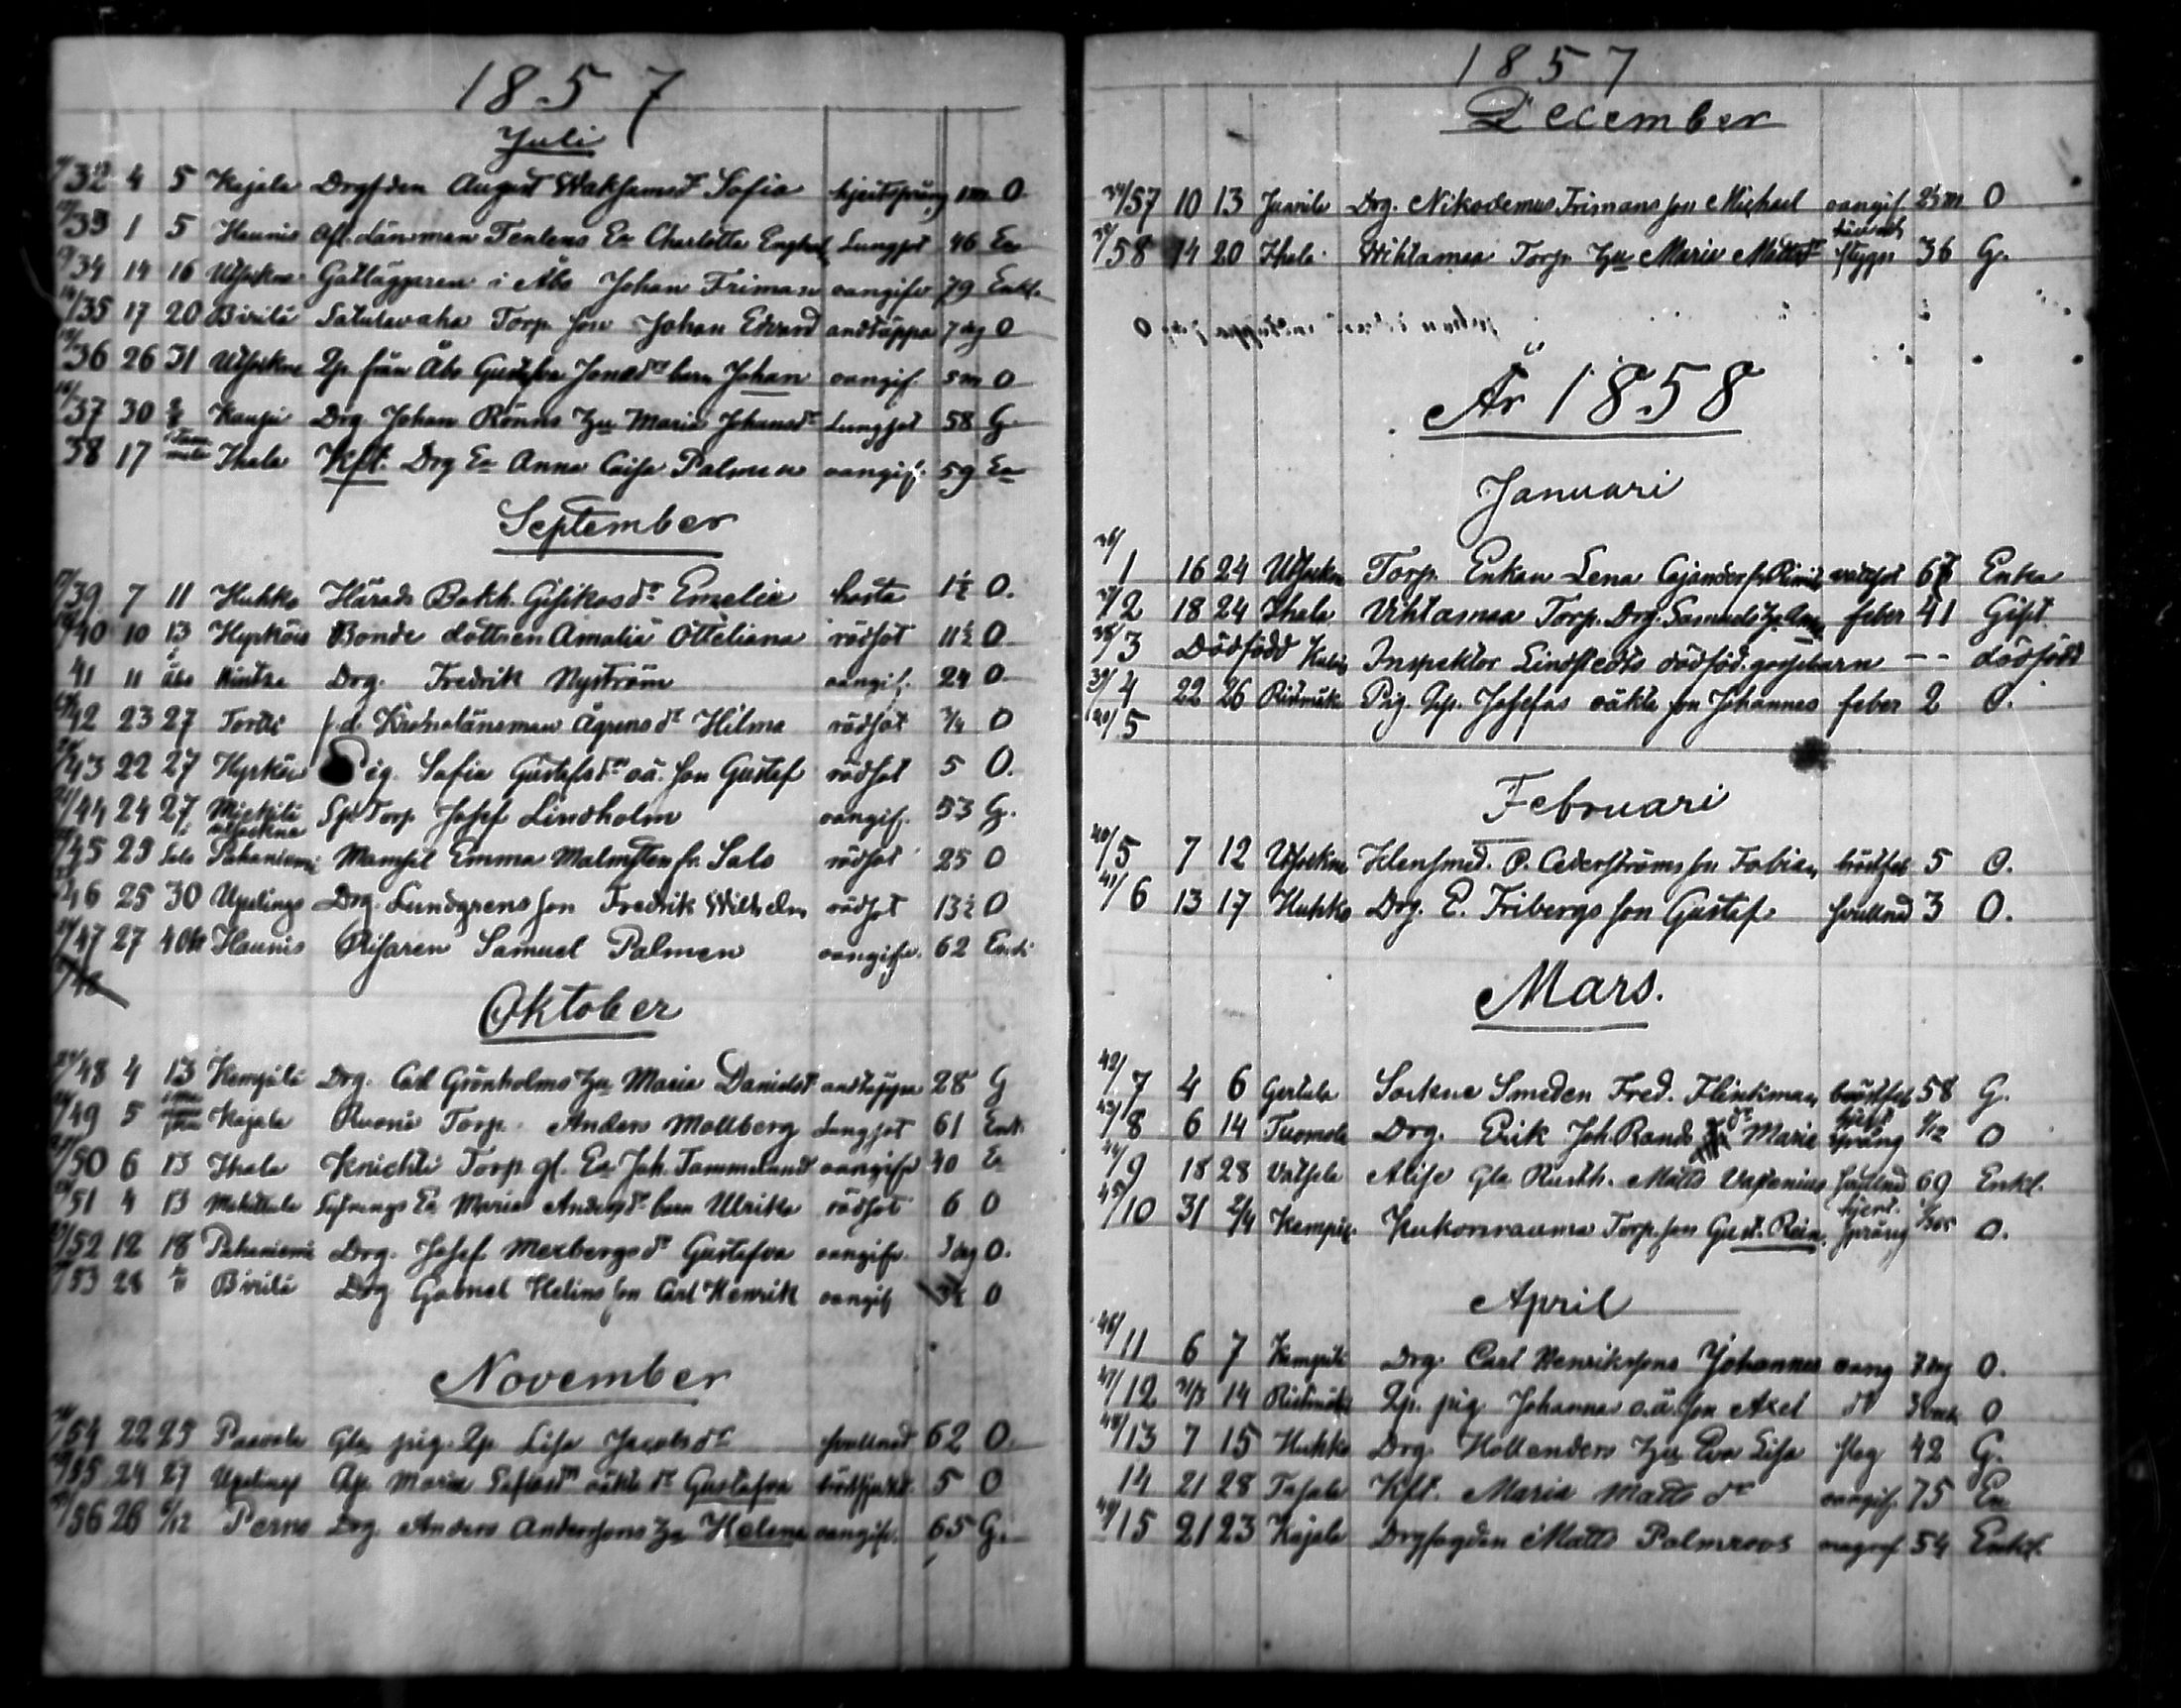 1857
Juli
32 4 5 Kajala Drgfden August Waksams dr Sofia hjertspräng 1 m O
33 1 5 Haunis Afl. länsman Tenlens Ea Charlotta Lungsot 46 Ea
34 14 16 Utsokne Gatläggaren i Åbo Johan Friman oangifv 79 Enkl.
35 17 20 Birilä Satulavaha Torp. son Johan Edvard andtäppa 7 dg O
36 26 31 Utsokne Qp. från Åbo Gustafva Jonasdr barn Johan oangif. 5 m O
37 30 Kaupi Drg. Johan Rönns hu Maria Johansdr Lungsot 58 G.
38 17 Ihala Kft. Drg Ea Anna Caisa Palmen oangif. 59 Ea
September
39 7 11 Huhko Härads Bokh. Gisikos dr Emelia hosta 1½ O.
40 10 13 Hyrköis Bonde dottren Amalia Otteliana rödsot 11½ O
41 11 Åbo Drg. Fredrik Nyström oangif. 24 O
42 23 27 f.d. Kronolänsman Ågrens dr Hilma rödsot ¾ O
43 22 27 Hyrköis Pig. Sofia Gustafsdr oä. son Gustaf rödsot 5 O.
44 24 27 Torp Josef Lindholm oangif. 53 G.
45 23 Salo Pahaniemi Mamsel Emma Malmsten fr. Salo rödsot 25 O
46 25 30 Upalingo Drg. Lundgrens son Fredrik Wilhelm rödsot 13½ O
47 27 4 Okt Haunis Risaren Samuel Palmen oangifv. 62 Enk
48
Oktober
24/48 4 13 Kempilä Drg. Carl Grönholms hu Maria Danielsdr andtäppa 28 G
49 5 Kajala Ruona Torp. Anders Mollberg Lungsot 61 Enk.
50 6 13 Ihala Knichti Torp. gl. Ea Joh. Tammelandr oangifv 40 E
51 4 13 Mahittula Ea Maria Andersdr barn Ulrika rödsot 6 O
52 12 18 Pahaniemi Drg. Josef Mexbergs dr Gustafva oangifv. 3 dg O.
53 28 Birilä Drg Gabriel Helins son Carl Henrik oangif O
November
54 22 25 Paavola Gla pig. Qp Lisa Jacobsdr svullnad 62 O.
55 24 27 Upalingo Qp. Maria oäkta dr Gustafva bröstsjukd. 5 O
56 26 6/12 Perno Drg. Anders Anderssons hu Helena oangifv. 65 G.
1857
December
34/57 10 13 Juavila Drg. Nikodemus Frimans son Michael oangif. 2½ m O
58 14 20 Ihala Wihlamaa Torp. hu Maria Mattsdr 36 G.
År 1858
Januari
36/1 16 24 Utsokne Torp. Enkan Lena Cajander fr. Rimito vattsot 67 Enka
37/2 18 24 Ihala Vihlamaa Torp. Drg. Samuels feber 41 Gift.
38/3 Dödfödd Inspektor Lindstedts dödföd. gossebarn -- dödfödd
39/4 22 26 Ristimäki Pig. Qp. Josefas oäkta son Johannes feber 2 O.
5
Februari
40/5 7 12 Utsokne Klensmed. O. Cederströms son Fabian bröstfeb 5 O.
41/6 13 17 Huhko Drg. E. Fribergs son Gustaf svullnad 3 O.
Mars.
42/7 4 6 Gertula Sockne Smeden Fred. Flinkman bröstfeb 58 G.
43/8 6 14 Tuomola Drg. Erik Joh. Rands dr Maria hjert spräng 1/12 O
44/9 18 28 Vatsela Alise Gla Rusth. Matts Vaxonius svullnad 69 Enkl.
45/10 31 2/4 Kempilä Kukonrauma Torp. son Gust. Rein. hjert. spräng O.
April
46/11 6 7 Kempilä Drg. Carl Henrikssons Johannes oang 7 dg O.
47/12 14 Ristimäki Qp. pig Johannas o.ä. son Axel do 3 vek O
48/13 7 15 Huhko Drg. Hollenders hu Eva Lisa slag 42 G.
14 21 28 Tahala Kft. Maria Matts dr oangif. 75 En
49/15 21 23 Kajala Drgfogden Matts Palmroos magref 54 Enkl.